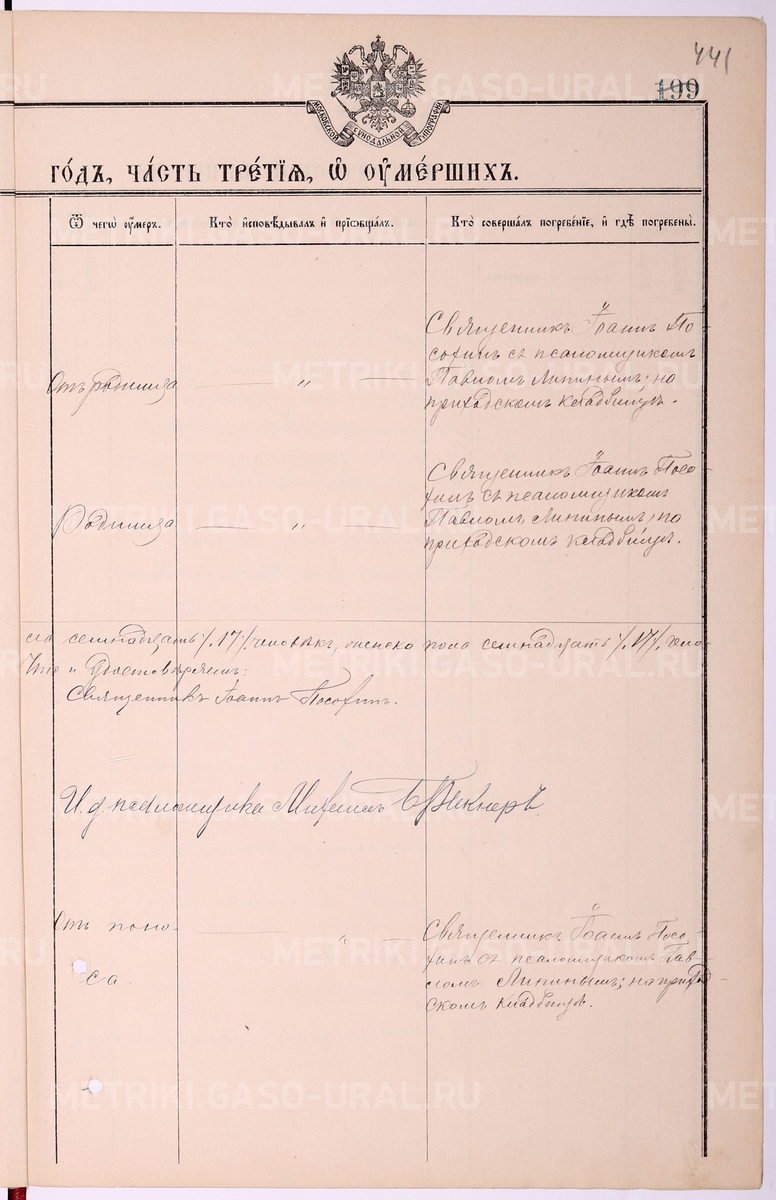 441
199
МОСКОВСКОЙ СѴНОДАЛЬНОЙ ТИПОГРАФІИ
го́дъ, ча́сть тре́тїѧ, ѡ҆ оу҆ме́ршихъ.
Ѿ чегѡ̀ оу҆́меръ.
Кто̀ и҆сповѣ́дывалъ и҆ прїѡбща́лъ.
Кто̀ соверша́лъ погребе́нїе, и҆ гдѣ̀ погребены̀.
Отъ родимца
— „ —
Священникъ Іоаннъ По-
софинъ съ псаломщикомъ
Павломъ Липинымъ; на
приходскомъ кладбищѣ.
Родимца
— „ —
Священникъ Іоаннъ Посо-
финъ съ псаломщикомъ
Павломъ Липинымъ; на
приходскомъ кладбищѣ.
семнадцать /17/ человѣкъ, женска пола семнадцать /17/ чело-
и удостовѣряемъ:
Священникъ Іоаннъ Пософинъ.
И. д. псаломщика Михаилъ
Отъ поно-
са.
— „ —
Священникъ Іоаннъ Посо-
финъ съ псаломщикомъ Пав-
ломъ Липинымъ; на приход-
скомъ кладбищѣ.
METRIKI.GASO-URAL.RU